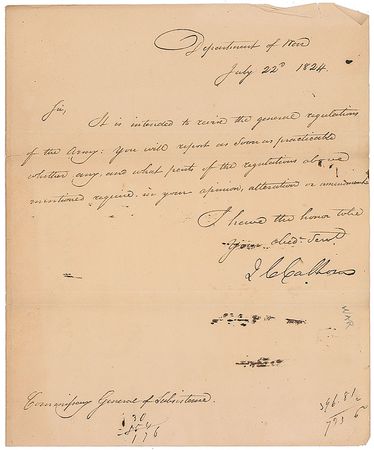 Department of War
July 22d 1824.
Sir,
It is intended to revise the general regulations
of the Army: You will report as soon as practicable
whether any, and what parts of the regulations above
mentioned require, in your opinion, alteration or amendment.
I have the honor to be
Your Obedt. Servt
J C Calhoun
WAR
Commissary General of Subsistence.